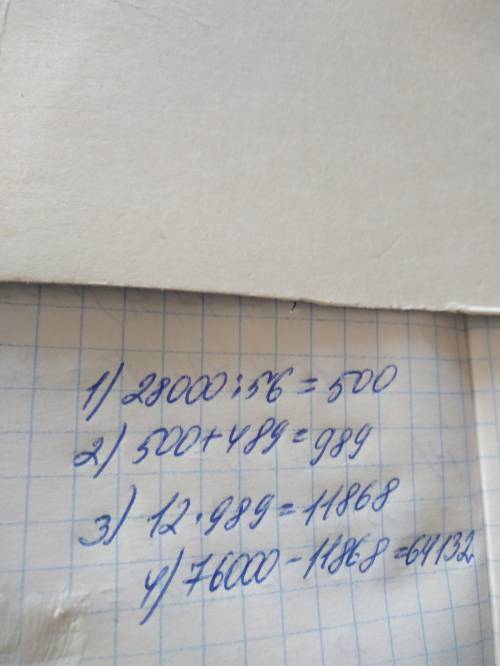 1) 28000:56=500
2) 500+489=989
3) 12·989=11868
4) 76000-11868=64132